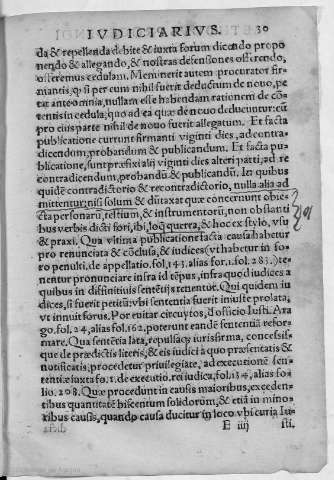 IVDICIARIVS. 30
da & repellenda debite & iuxta forum dicendo propo
nendo & allegando, & nostras defensiones offerendo,
offeremus cedulam. Meminerit autem procurator fir
mantis, ꝙ si per eum nihil fuerit deductum de nouo, pe
tat ante omnia, nullam esse habendam rationem de cō
tentis in cedula: quo ad ea quæ de nouo deducuntur: cū
pro eius parte nihil de nouo fuerit allegatum. Et facta
publicatione currunt firmanti viginti dies, ad contra-
dicendum, probandum & publicandum. Et facta pu-
blicatione, sunt præfixi alij viginti dies alteri parti, ad re
contradicendum, probandū & publicandū. In quibus
quidē contradictorio & recontradictorio, nulla alia ad
mittentur: nisi solum & dūtaxat quæ concernunt obie-
cta personarū, testium, & instrumentorū, non obstanti
bus verbis dicti fori, ibi, loq̃ querra, & hoc ex stylo, vsu
& praxi. Qua vltima publicatione facta causa habetur
pro renunciata & cōclusa, & iudices (vt habetur in fo-
ro penulti. de appellatio. fol. 141. alias for. 1. fol. 283.) te-
nentur pronunciare infra id tēpus, infra quod iudices a
quibus in diffinitiuis sentētijs tenentur. Qui quidem iu
dices, si fuerit petitū: vbi sententia fuerit iniuste prolata,
vt innuit forus. Por euitar circuytos, d'officio Iusti. Ara
go. fol. 24. alias fol. 162. poterunt eandē sententiā refor-
mare. Qua sentētia lata, repulsacȝ iurisfirma, concessis-
que de prædictis literis, & eis iudici à quo præsentatis &
notificatis, procedetur priuilegiate, ad executionē sen-
tentiæ iuxta fo. 1. de executio. rei iudica, fol. 134. alias fo-
lio. 208. Quæ procedunt in causis maioribus, exceden-
tibus quantitatē biscentum solidorum, & etiā in mino-
ribus causis, quando causa ducitur in loco vbi curia Iu-
E iiij sti.